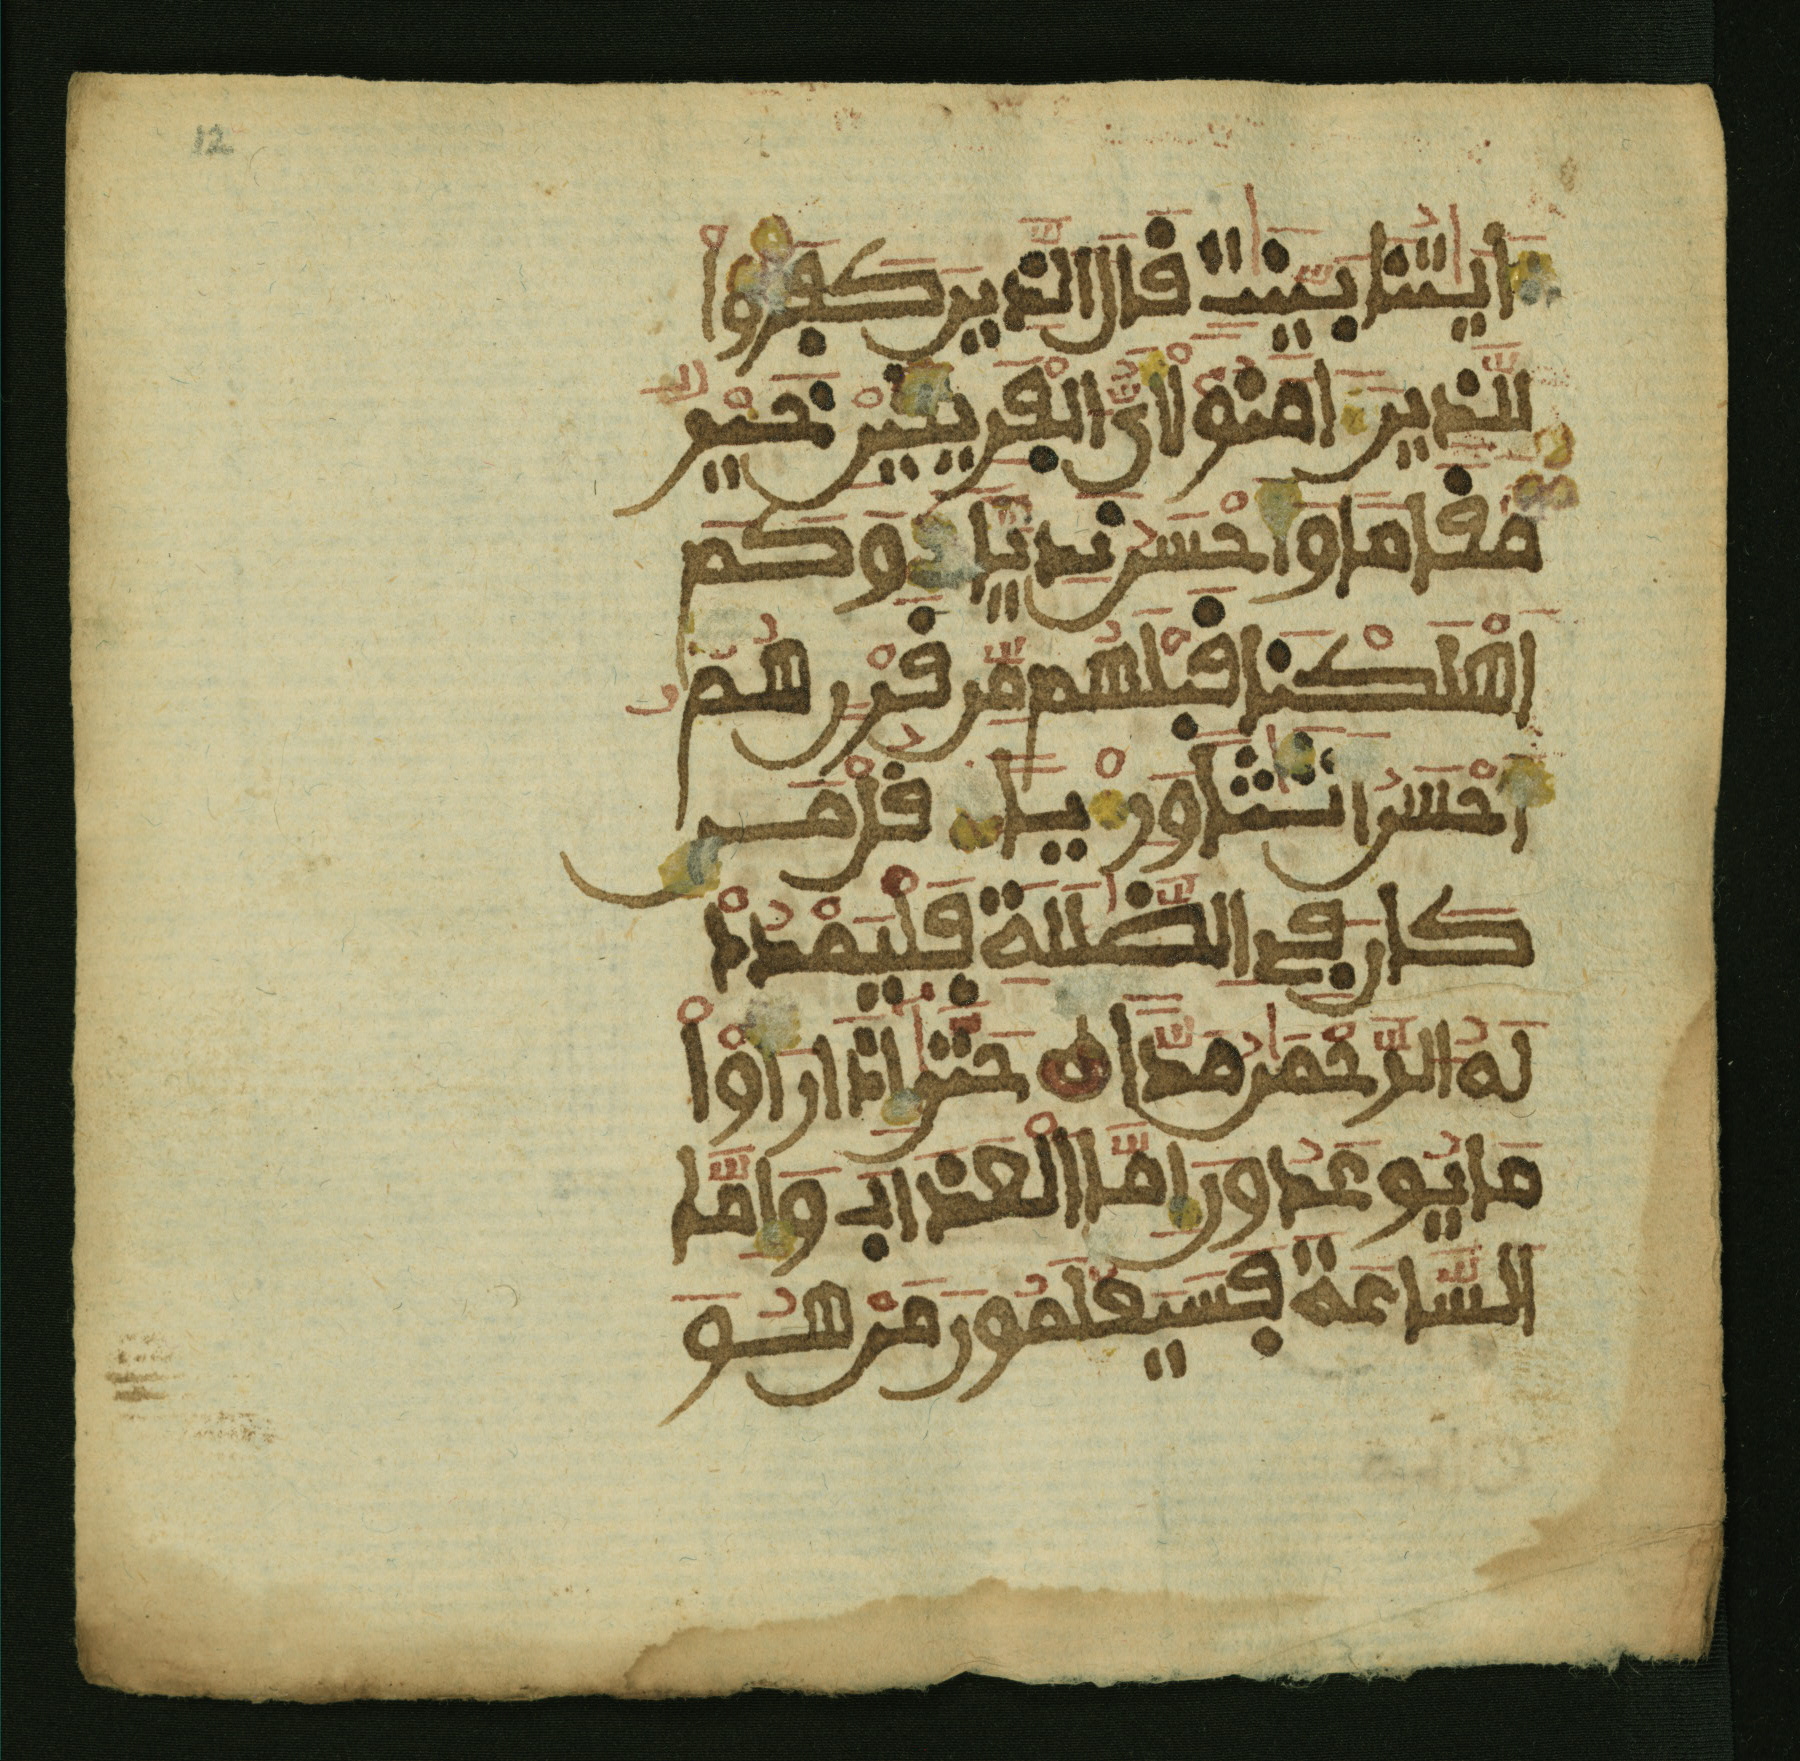 12
ءايٰتنا بيّنٰت قال الّذين كفروا
للّذين ءامنوا أىّ الفريقين خيرٌ
مّقاما وأحسن نديّا وكم
أهلكنا قبلهم مّن قرن هم
أحسن أثٰثا ورءيا قل من
كان فى الضّلٰلة فليمدد
له الرّحمٰن مدّا حتّىٰ إذا رأوا
ما يوعدون إمّا العذاب وإمّا
السّاعة فسيعلمون من هو